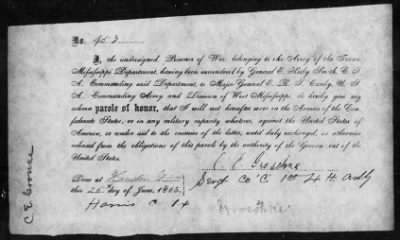 No. 952
I, the undersigned, Prisoner of War, belonging to the Army of the Trans
Mississippi Department, having been surrendered by General E. Kirby Smith, C. S.
A., Commanding said Department, to Major General E. R. S. Canby, U. S.
A., Commanding Army and Division of West Mississippi, do hereby give my
solemn parole of honor, that I will not hereafter serve in the Armies of the Con-
federate States, or in any military capacity whatever, against the United States of
America, or render aid to the enemies of the latter, until duly exchanged, or otherwise
released from the obligations of this parole by the authority of the Government of the
United States.
C. E.
Done at Houston
Sergt Co "C" 1st
this 26 day of June, 1865.
Harris C
C E